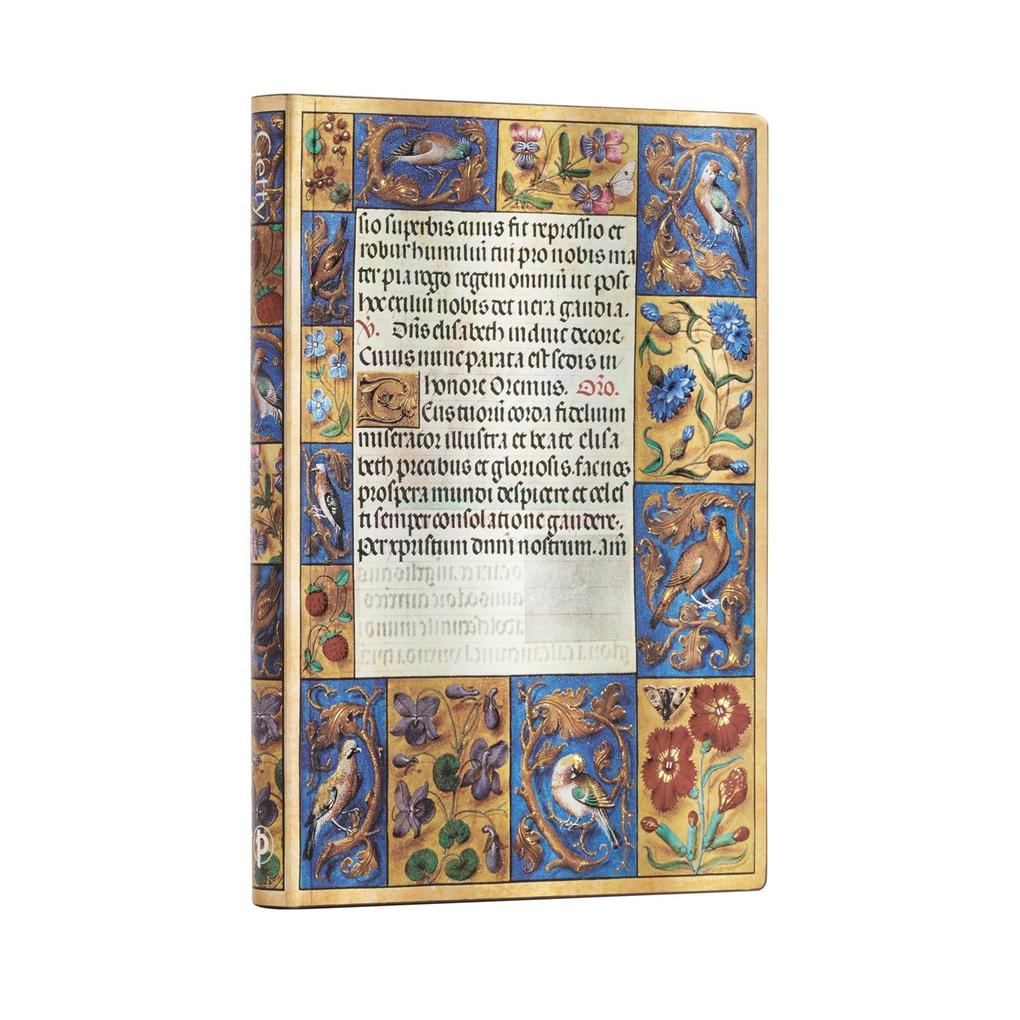 Getty
sio superbis cuius fit repressio et
robur humiliū cui pro nobis ma
ter pia rogo regem omniū ut post
hoc exiliū nobis det uera gaudia.
℣. Dñs elisabeth induit decore
Cuius nunc parata est sedis in
honore Oremus. Orō.
DEus tuorū corda fidelium
miserator illustra et beate elisa
beth precibus et gloriosis. fac nos
prospera mundi despicere et celes
ti semper consolatione gaudere.
Per xpristum dnm̄ nostrum. am̄